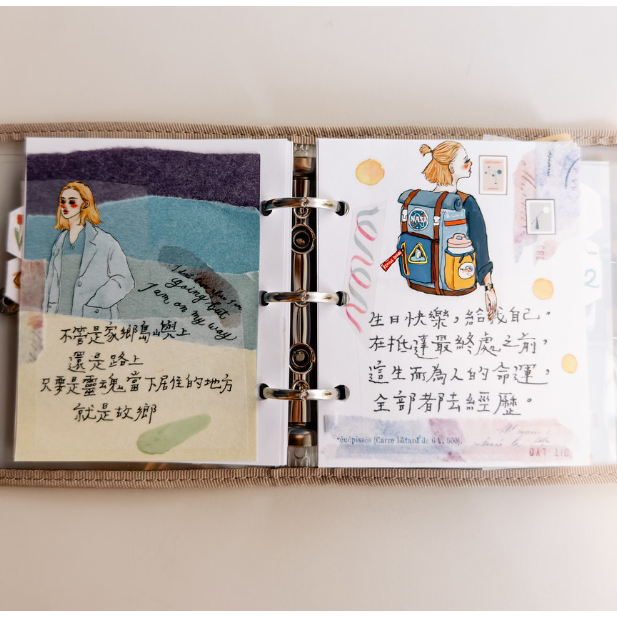 going, but
I am on my way
不管是家鄉島嶼上
還是路上
只要是靈魂當下居住的地方
就是故鄉
NASA
生日快樂，給我自己。
在抵達最終處之前，
這生而為人的命運，
全部都去經歷。
2